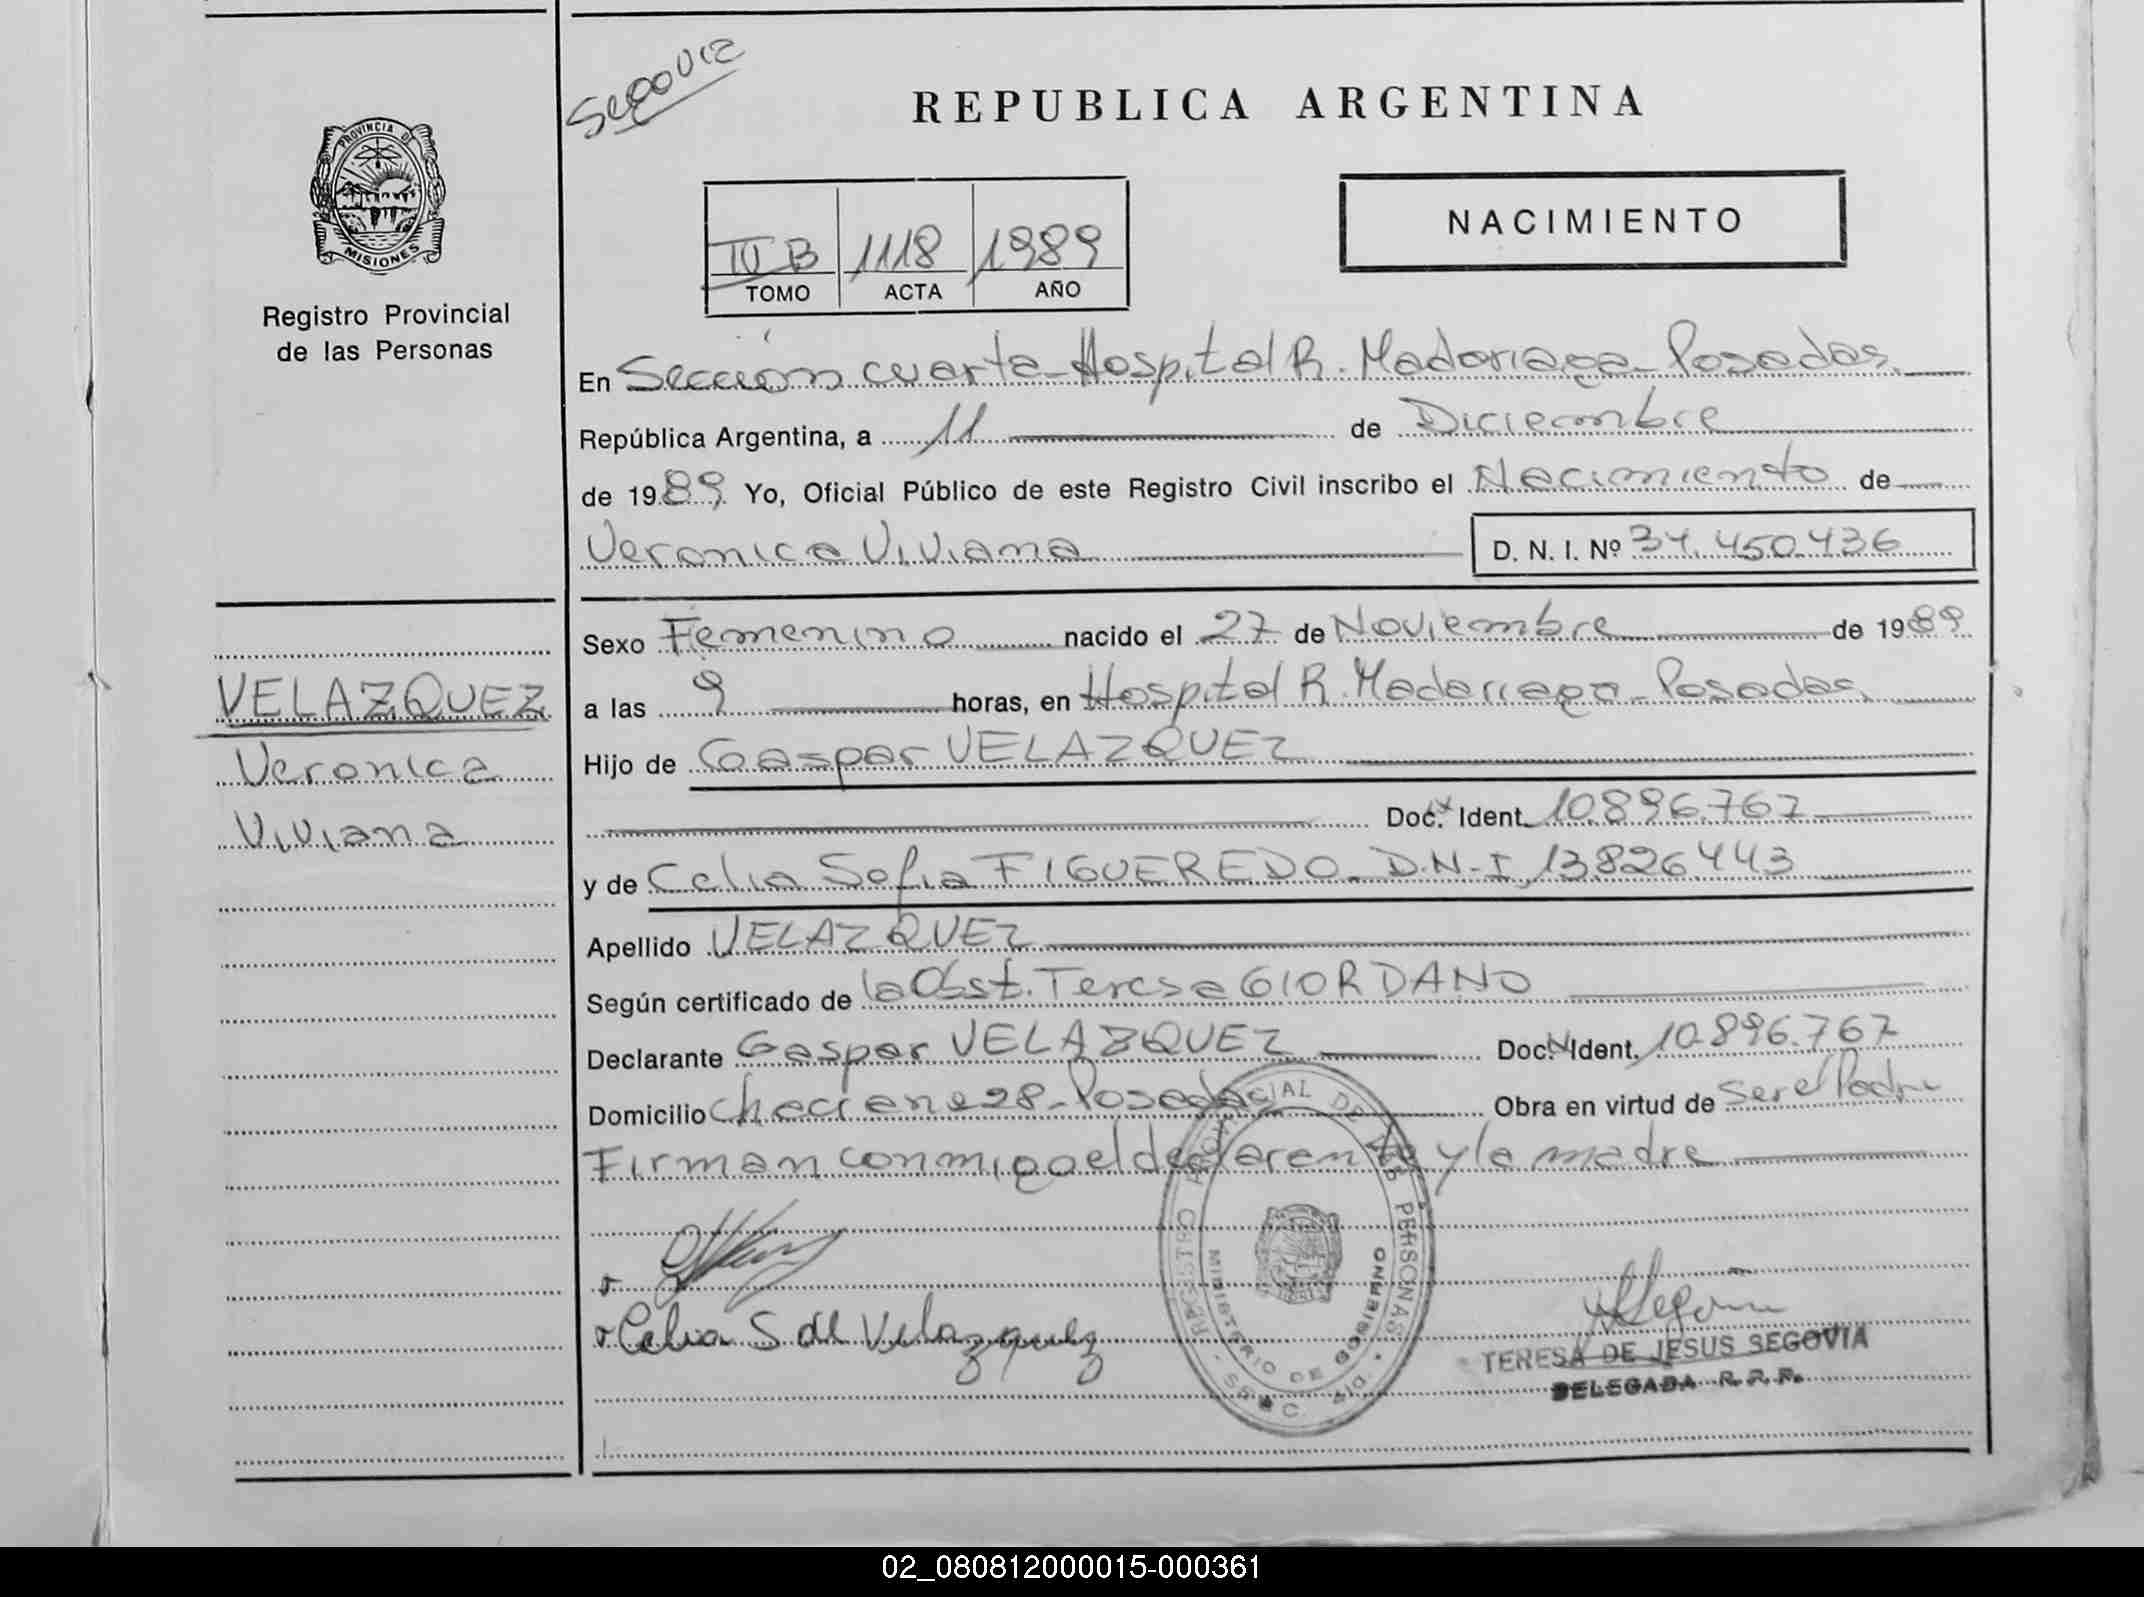 Segovia
REPUBLICA ARGENTINA
PROVINCIA DE
MISIONES
Registro Provincial
de las Personas
NACIMIENTO
IV B 1118 1989
TOMO ACTA AÑO
En Sección cuarta - Hospital R. Madariaga - Posadas.
República Argentina, a 11 de Diciembre
de 1989. Yo, Oficial Público de este Registro Civil inscribo el Nacimiento de
Veronica Viviana D. N. I. Nº 34.450.436
Sexo Femenino nacido el 27 de Noviembre de 1989
a las 9 horas, en Hospital R. Madariaga - Posadas.
Hijo de Gaspar VELAZQUEZ
Doc. Ident. 10.896.767
y de Celia Sofia FIGUEREDO - D.N.I. 13.826.443
Apellido VELAZQUEZ
Según certificado de la Obst. Teresa GIORDANO
Declarante Gaspar VELAZQUEZ Doc. Ident. 10.896.767
Domicilio 228 - Posadas Obra en virtud de ser el Padre
Firman conmigo el declarante y la madre
VELAZQUEZ
Veronica
Viviana
Celia S de Velazquez
REGISTRO PROVINCIAL DE LAS PERSONAS
MINISTERIO DE GOBIERNO
TERESA DE JESUS SEGOVIA
DELEGADA R. P. P.
02_080812000015-000361